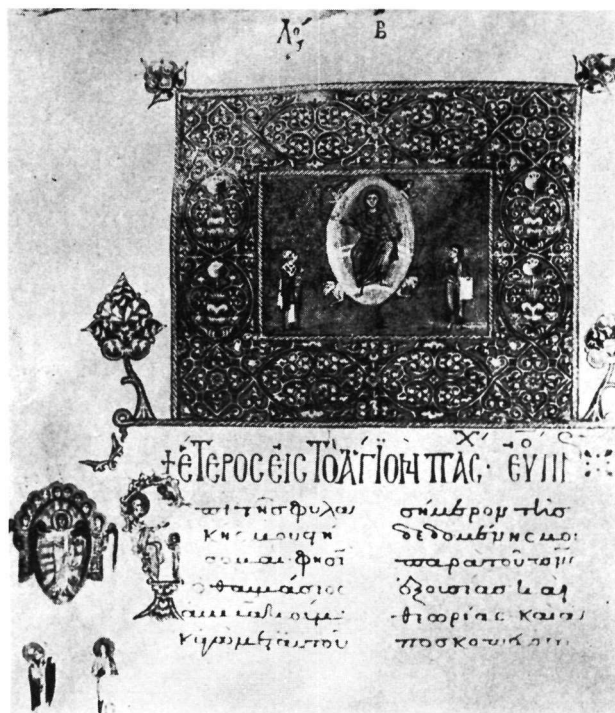 Λό Β
+ ἝΤΕΡΟC ΕἸC ΤῸ ἍΓΙΟΝ ΠΑCΧ· ΕΥΛ
Ἐπὶ τῆς φυλα
κῆς μου στή
σομαι φησὶ
ὁ θαυμάσιος
κἀγὼ μετ' αὐτοῦ
σήμερον τῆς
δεδομένης μοι
παρὰ τοῦ
ἐξουσίας καὶ
θεωρίας καὶ ἀ
ποσκοπεύσω